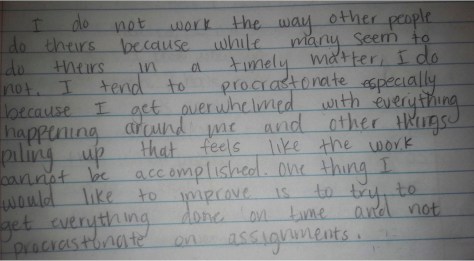 I do not work the way other people
do theirs because while many seem to
do theirs in a timely matter, I do
not. I tend to procrastonate especially
because I get overwhelmed with everything
happening around me and other things
piling up that feels like the work
cannot be accomplished. One thing I
would like to improve is to try to
get everything done on time and not
procrastonate on assignments.